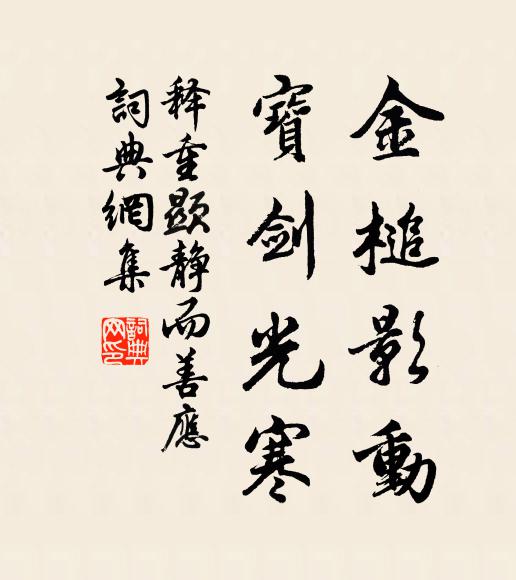 金槌影動
寶劍光寒
释重顯靜而善應
詞典網集
詞典網印